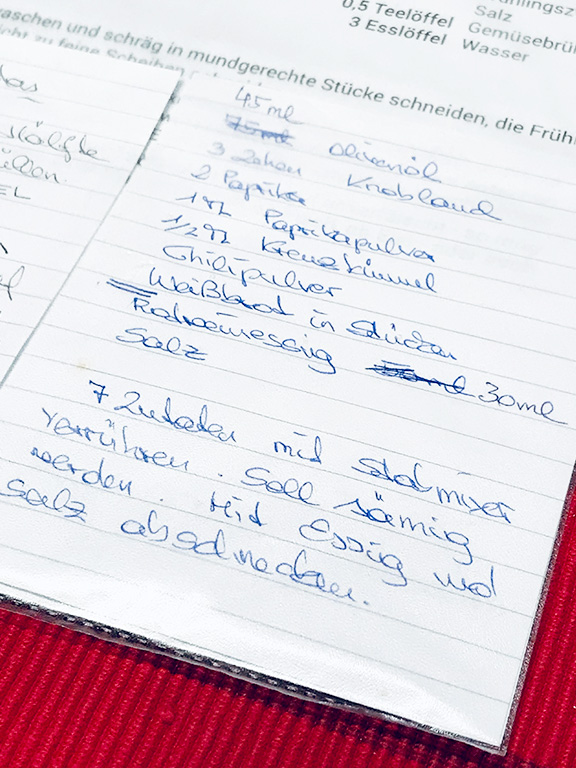 0,5 Teelöffel
Salz
Gemüsebrü
3 Esslöffel Wasser
waschen und schräg in mundgerechte Stücke schneiden, die Früh
icht zu feine Scheiben
45ml
75ml Olivenöl
3 Zehen Knoblauch
2 Paprika
1 TL Paprikapulver
1/2 TL Kreuzkümmel
Chilipulver
Weißbrot in Stücken
Rotweinessig 30ml
Salz
7 Zutaten mit Stabmixer
verrühren. Soll sämig
werden. Mit Essig und
Salz abschmecken.